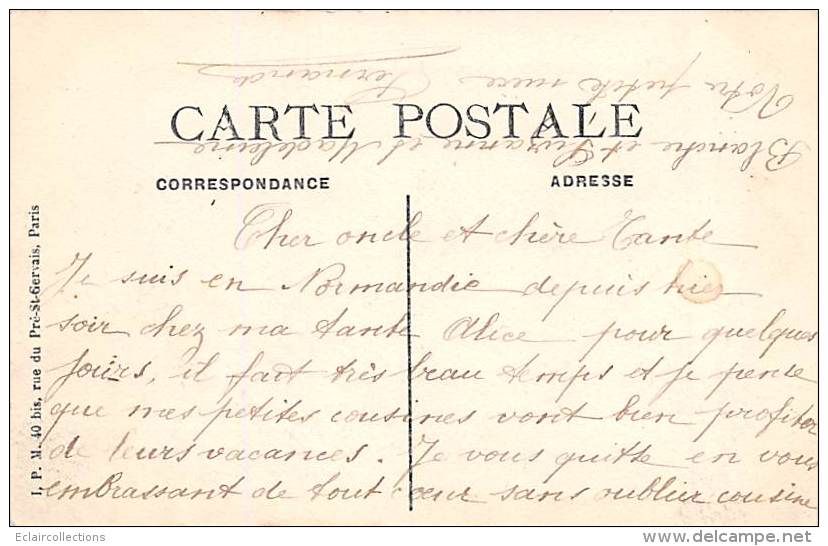 CARTE POSTALE
CORRESPONDANCE
ADRESSE
Cher oncle et chère Tante
Je suis en Normandie depuis hier
soir chez ma tante Alice pour quelques
jours, il fait très beau temps et je pense
que mes petites cousines vont bien profiter
de leurs vacances. Je vous quitte en vous
embrassant de tout cœur sans oublier cousine
Blanche et Suzanne et Madeleine
Votre petite nièce
Fernande
I. P. M. 40 bis, rue du Pré-St-Gervais, Paris
Eclaircollections
www.delcampe.net